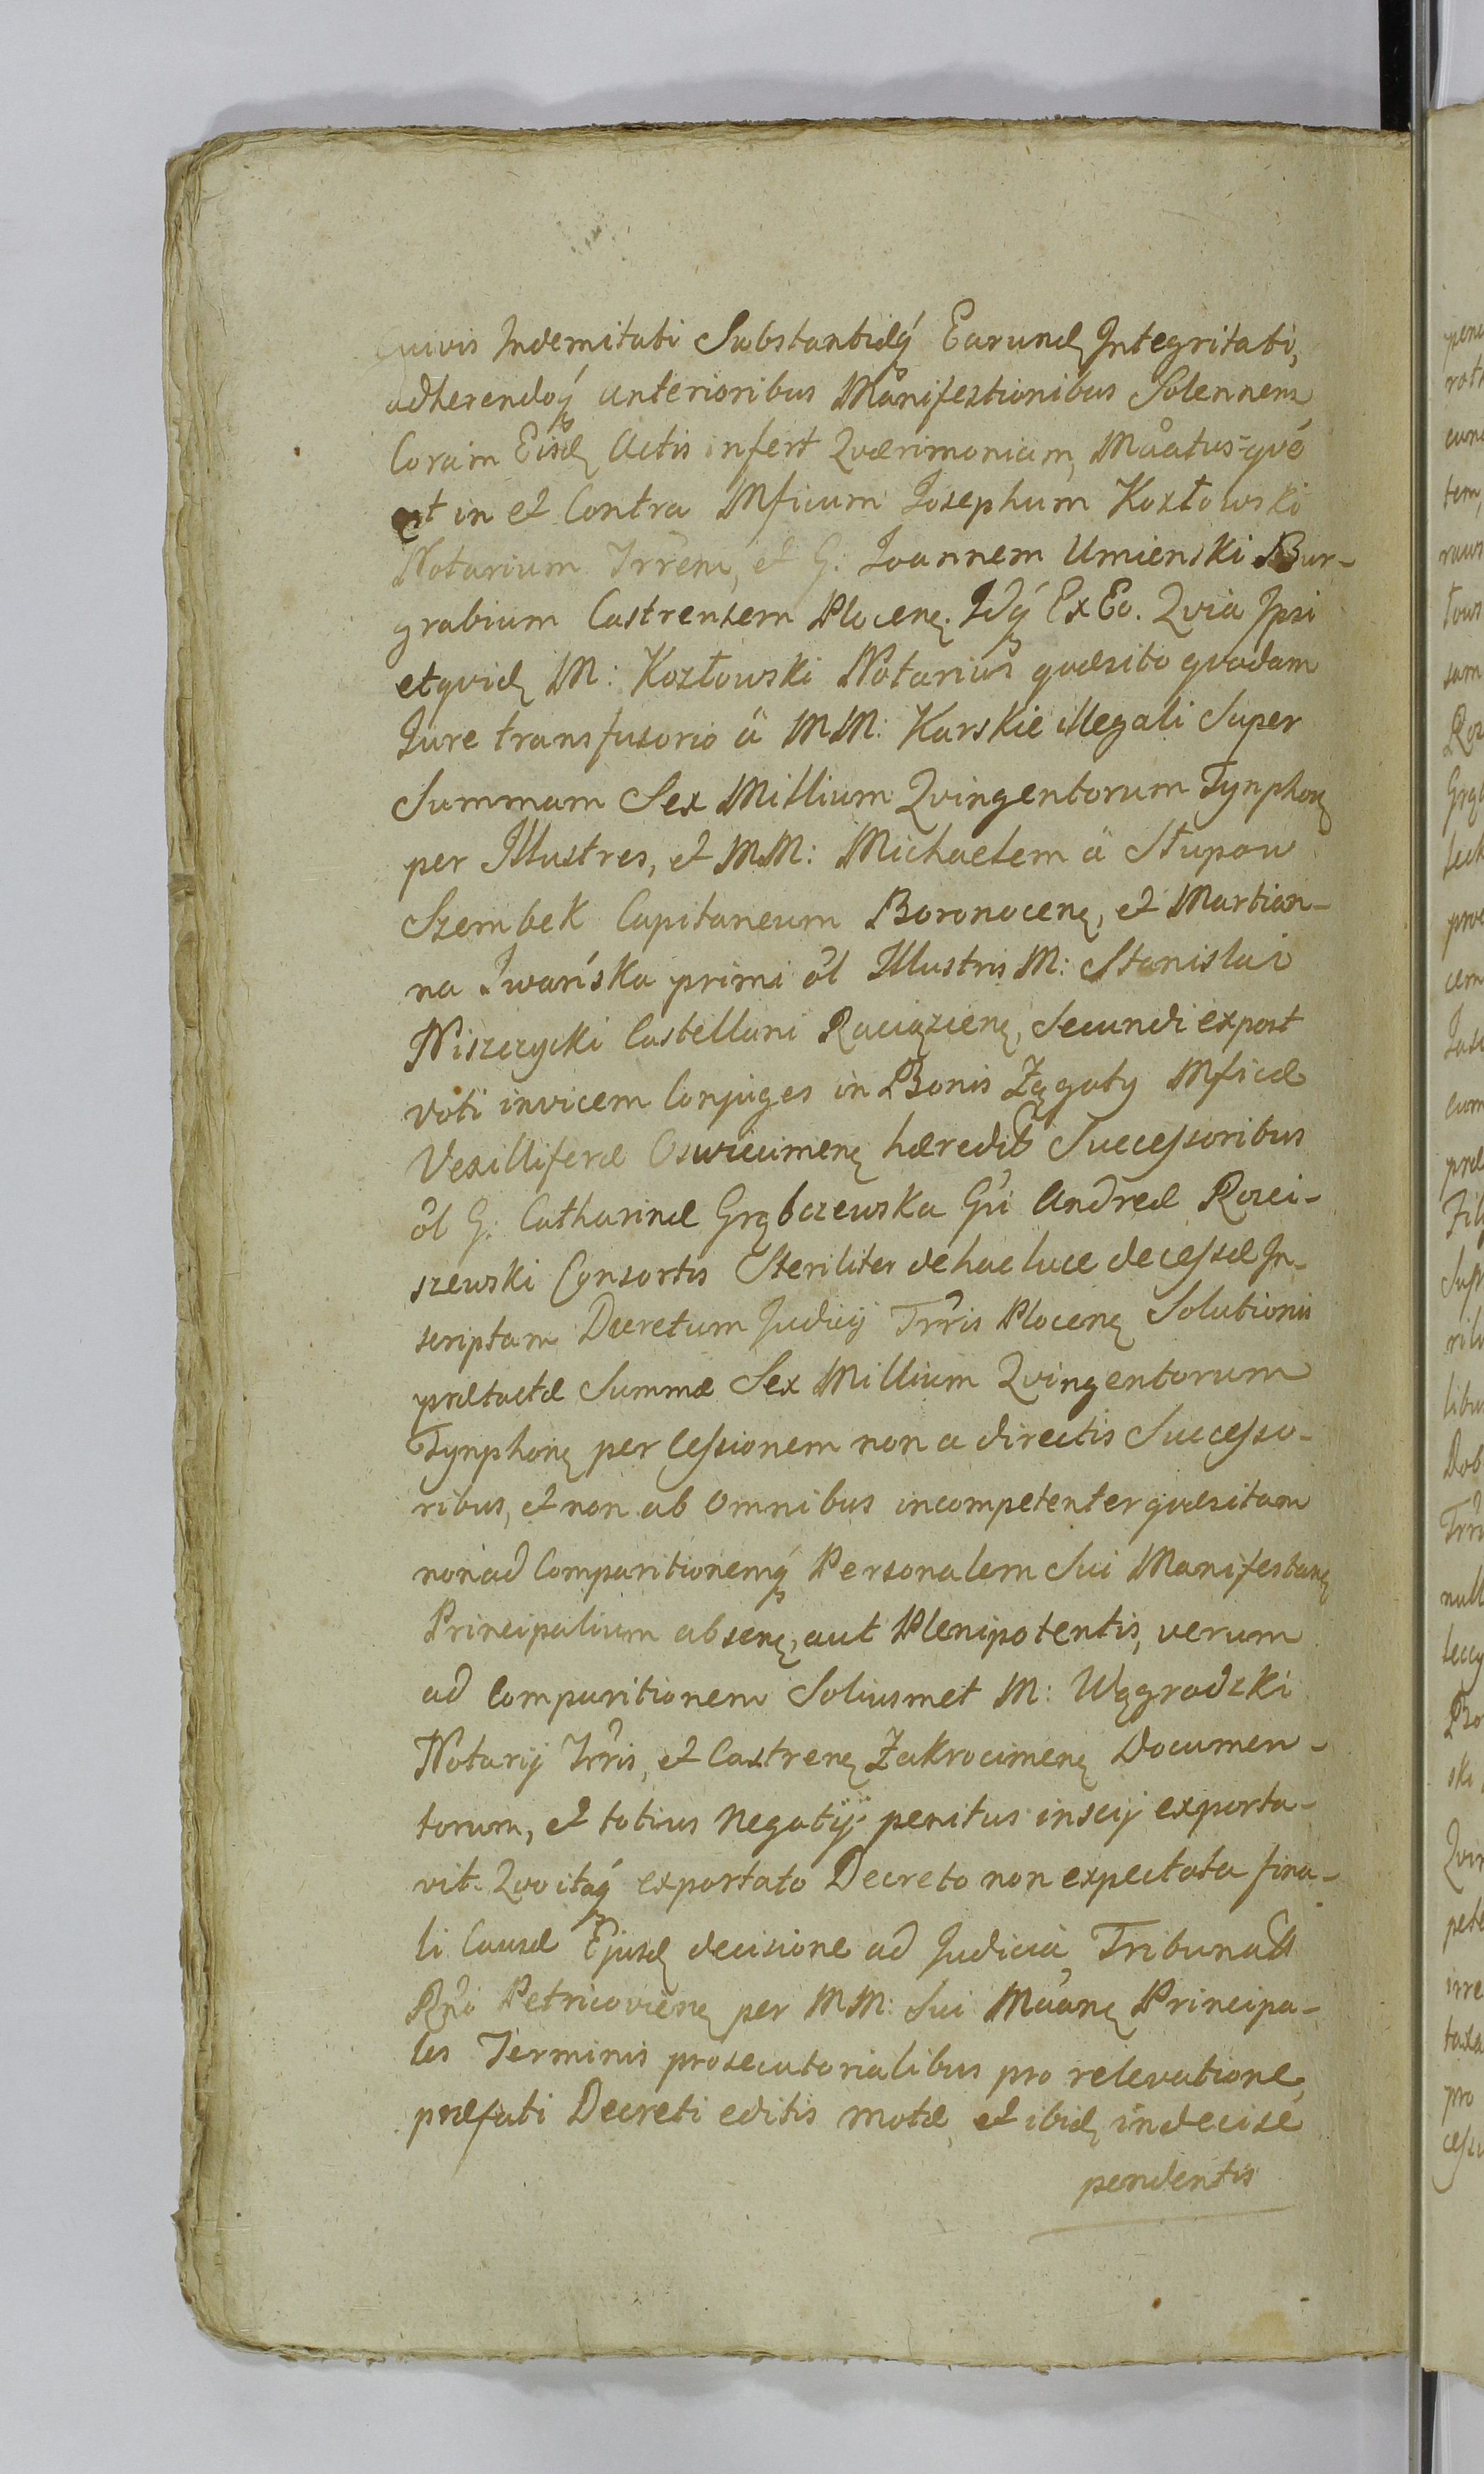 quivis Indemitati Substantiæq́ꝫ Earundꝫ Integritati,
adherendoq́ꝫ anterioribus Manifestionibus Solennem
Coram Eisdꝫ Actis infert Qværimoniam, Mãatus-qvè
est in et Contra Mficum Josephum Kozłowski
Notarium Trrem, et G. Joannem Umienski Bur-
grabium Castrensem Plocenꝫ. Idq́ꝫ Ex Eo. Qvia Ipsi
etqvidꝫ M: Kozłowski Notarius qvæsito qvodam
Jure transfusorio à MM: Karskie illegali Super
Summam Sex Millium Qvingentorum Tynphorꝫ
per Illustres, et MM: Michaelem à Słupow
Szembek Capitaneum Boronocenꝫ, et Martian-
na Iwańska primi ol Illustris M: Stanislai
Niszczycki Castellani Raciązienꝫ, Secundi expost
voti invicem Conjuges in Bonis Zągoty Mficæ
Vexilliferæ Oswiecimenꝫ hæredit Successoribus
ol G. Catharinæ Grąbczewska Gsi Andreæ Rosci-
szewski Consortis Steriliter de hac luce decessæ In-
scriptam Decretum Judicij Trris Plocenꝫ Solutionis
prætactæ Summæ Sex Millium Qvingentorum
Tynphorꝫ per Cessionem non a directis Successo-
ribus, et non ab Omnibus incompetenter qvæsitam
non ad Comparitionemq́ꝫ Personalem Sui Manifestanꝫ
Principalium absenꝫ, aut Plenipotentis, verum
ad Comparitionem Soliusmet M: Wągrodzki
Notarij Trris, et Castrenꝫ Zakrocimenꝫ Documen-
torum, et totius Negotij penitus inscij exporta-
vit. Qvo itaq́ꝫ exportato Decreto non expectata fina-
li Causæ Ejusdꝫ decisione ad Judicia Tribunalis
Rni Petricovienꝫ per MM: Sui Mãanꝫ Principa-
les Terminis prosecutorialibus pro relevatione
præfati Decreti editis motæ, et ibidꝫ indecisè
pendentis